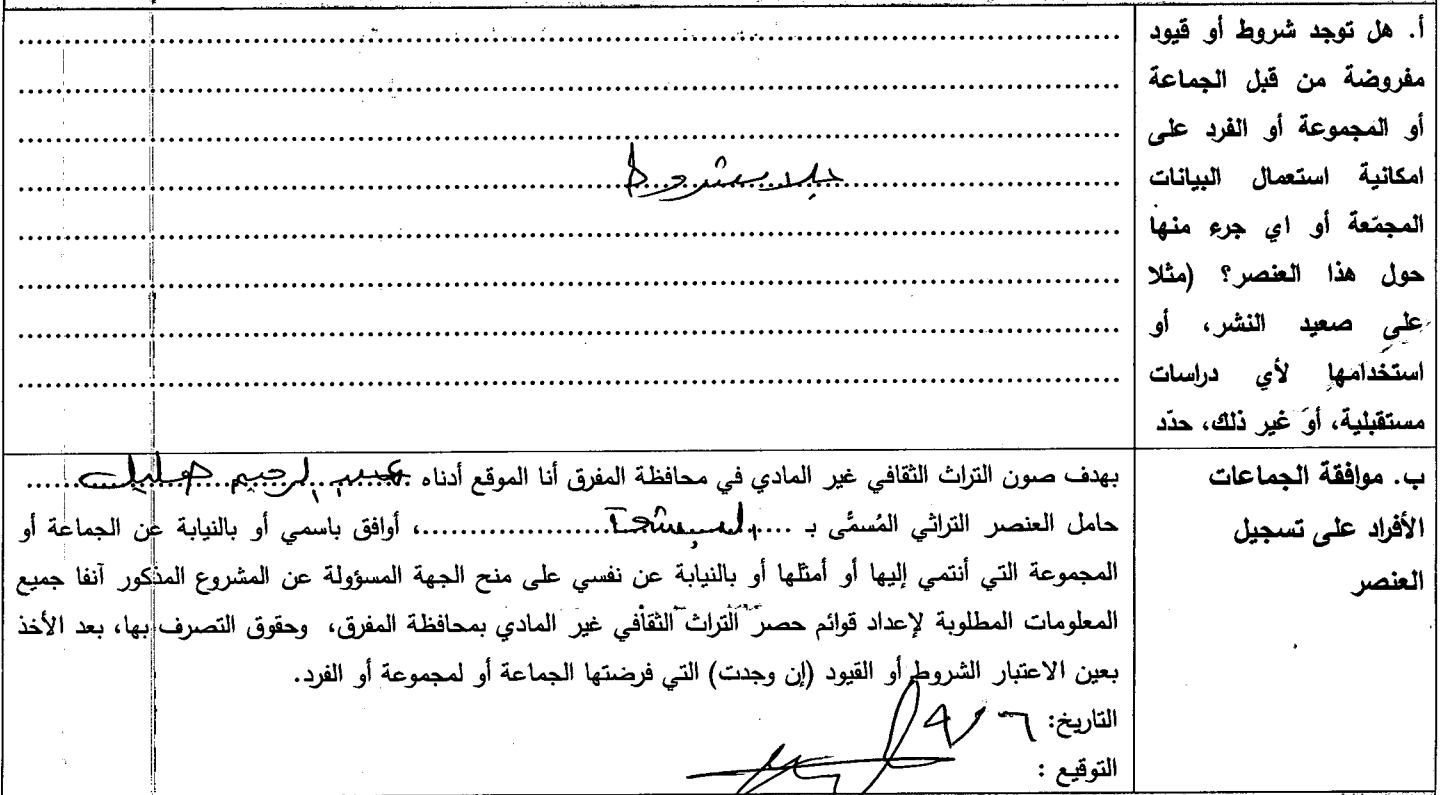 أ. هل توجد شروط أو قيود
مفروضة من قبل الجماعة
أو المجموعة أو الفرد على
امكانية استعمال البيانات
المجمّعة أو اي جرء منها
حول هذا العنصر؟ (مثلا
على صعيد النشر، أو
استخدامها لأي دراسات
مستقبلية، أو غير ذلك، حدّد
بدون شروط
ب. موافقة الجماعات
الأفراد على تسجيل
العنصر
بهدف صون التراث الثقافي غير المادي في محافظة المفرق أنا الموقع أدناه
حامل العنصر التراثي المُسمَّى بـ ....................، أوافق باسمي أو بالنيابة عن الجماعة أو
المجموعة التي أنتمي إليها أو أمثلها أو بالنيابة عن نفسي على منح الجهة المسؤولة عن المشروع المذكور آنفا جميع
المعلومات المطلوبة لإعداد قوائم حصر التراث الثقافي غير المادي بمحافظة المفرق، وحقوق التصرف بها، بعد الأخذ
بعين الاعتبار الشروط أو القيود (إن وجدت) التي فرضتها الجماعة أو لمجموعة أو الفرد.
التاريخ: ٦ / ٩
التوقيع :